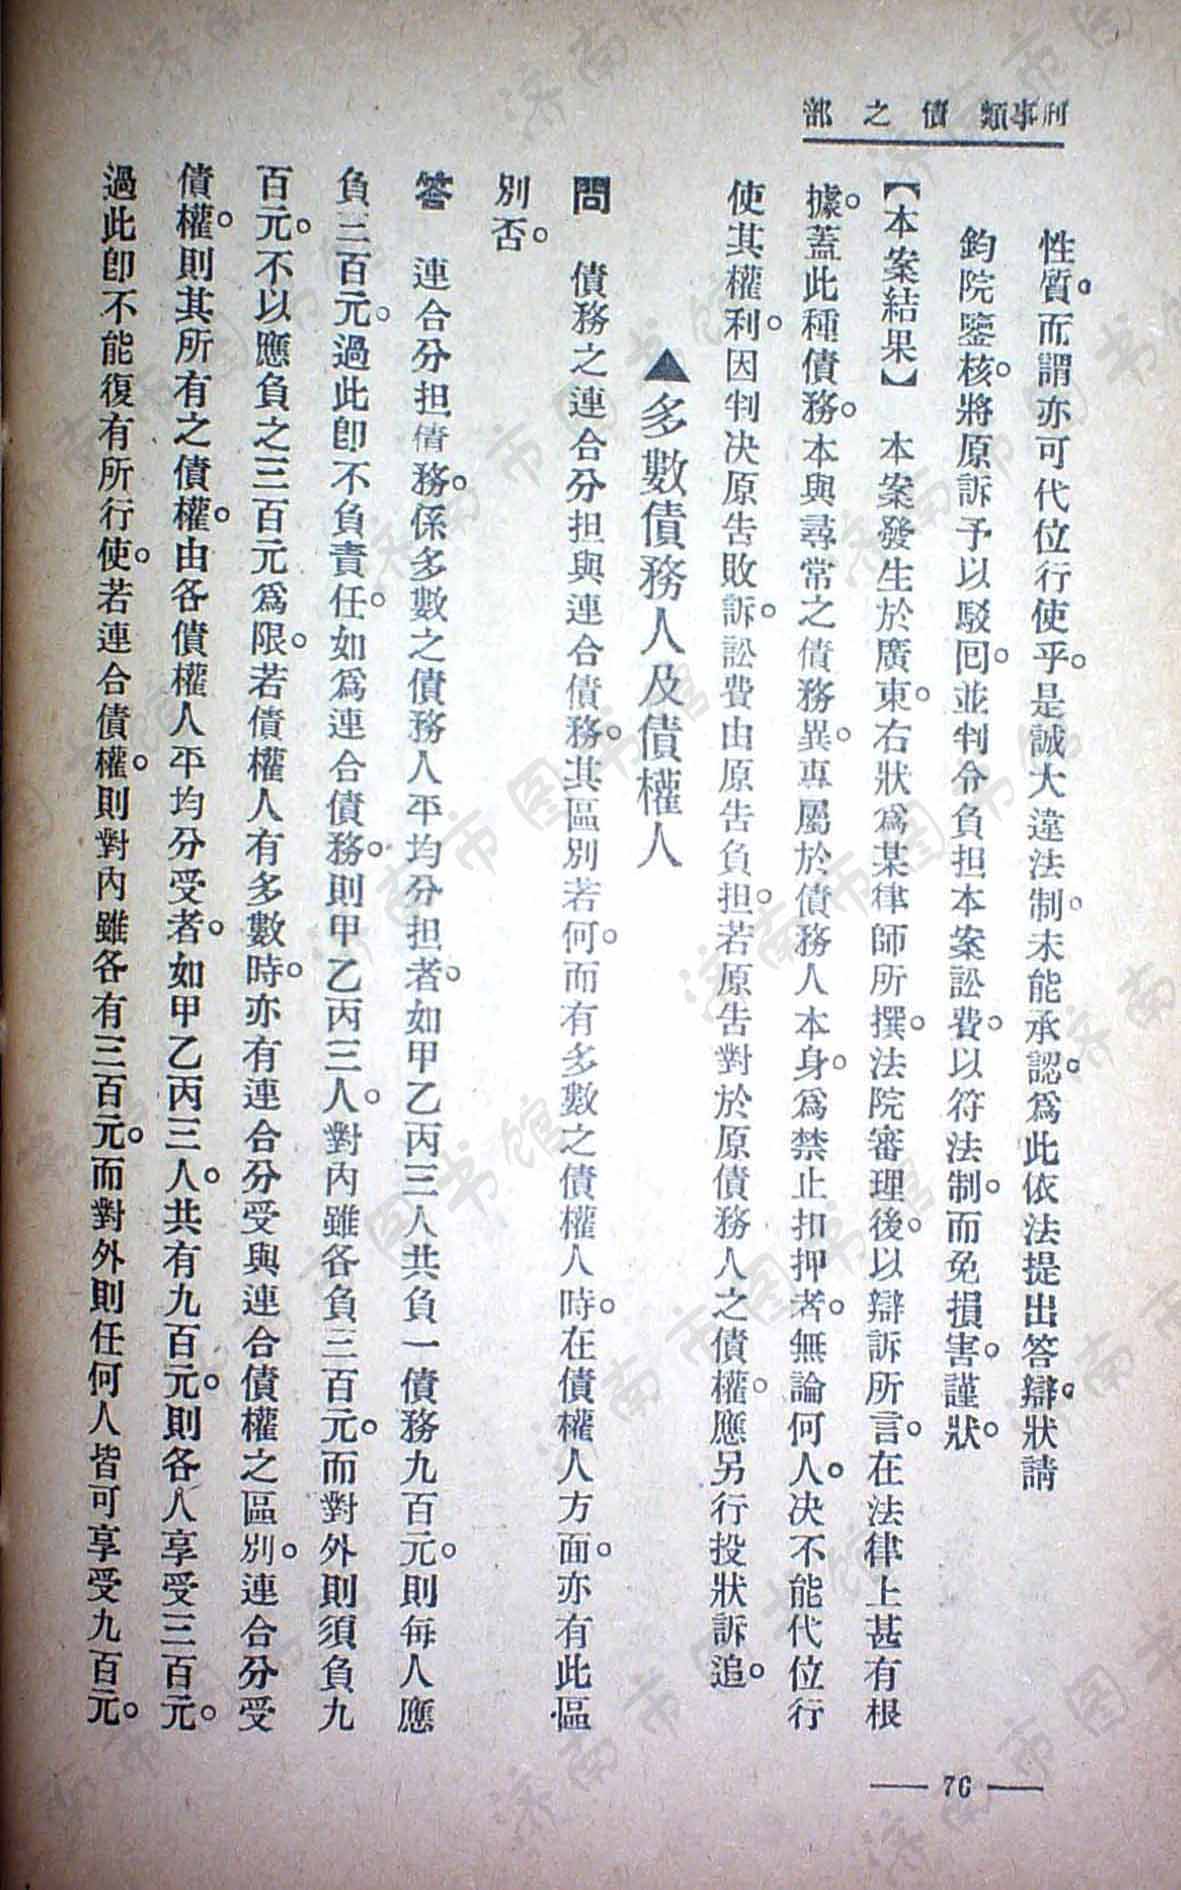 刑事類 債之部
性質。而謂亦可代位行使乎。是誠大違法制。未能承認。爲此依法提出答辯。狀請
鈞院鑒核。將原訴予以駁囘。並判令負担本案訟費。以符法制。而免損害。謹狀。
【本案結果】 本案發生於廣東。右狀爲某律師所撰。法院審理後。以辯訴所言。在法律上甚有根
據。蓋此種債務。本與尋常之債務異。專屬於債務人本身。爲禁止扣押者。無論何人。決不能代位行
使其權利。因判決原告敗訴。訟費由原告負担。若原告對於原債務人之債權。應另行投狀訴追。
▲多數債務人及債權人
問 債務之連合分担與連合債務。其區別若何。而有多數之債權人時。在債權人方面。亦有此區
別否。
答 連合分担債務。係多數之債務人平均分担者。如甲乙丙三人共負一債務九百元。則每人應
負三百元。過此卽不負責任。如爲連合債務。則甲乙丙三人。對內雖各負三百元。而對外則須負九
百元。不以應負之三百元爲限。若債權人有多數時。亦有連合分受與連合債權之區別。連合分受
債權。則其所有之債權。由各債權人平均分受者。如甲乙丙三人。共有九百元。則各人享受三百元。
過此卽不能復有所行使。若連合債權。則對內雖各有三百元。而對外則任何人皆可享受九百元。
76
济南市图书馆